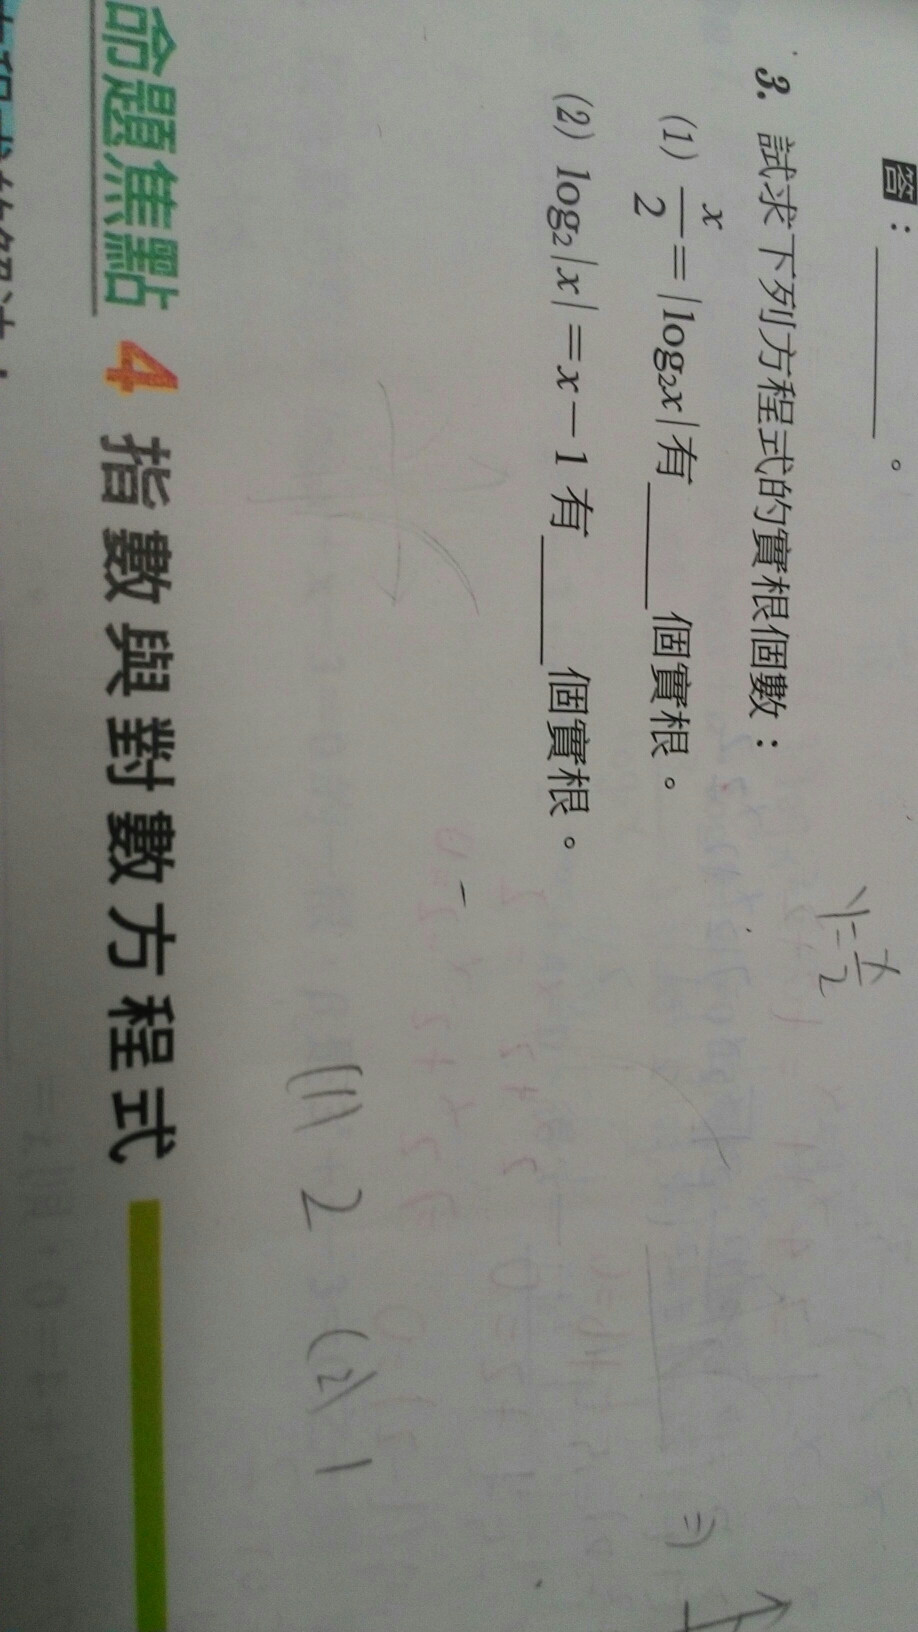 答：＿＿＿。
3. 試求下列方程式的實根個數：
(1) x/2 = |log₂x| 有＿＿＿個實根。
(2) log₂|x| = x − 1 有＿＿＿個實根。
y = x/2
(1) 2 (2) 1
命題焦點 4 指數與對數方程式